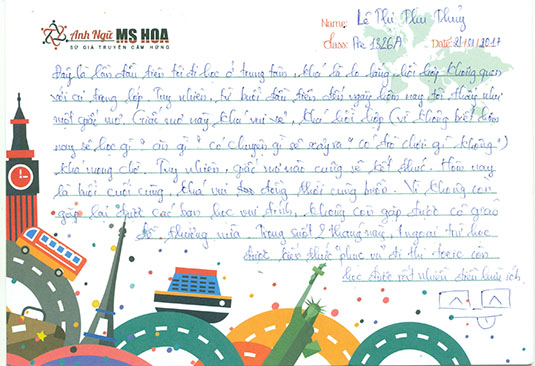 Anh Ngữ MS HOA
SỨ GIẢ TRUYỀN CẢM HỨNG
Name: Lê Thị Thu Thủy
Class: Pre 1326A Date: 21/01/2017
Đây là lần đầu tiên tôi đi học ở trung tâm, khá là lo lắng, hồi hộp không quen
với cả trong lớp. Tuy nhiên, từ buổi đầu tiên đến ngày hôm nay tôi thấy như
một giấc mơ. Giấc mơ này khá vui vẻ, khá hồi hộp (vì không biết hôm
nay sẽ học gì " ăn gì " có chuyện gì sẽ xảy ra " có trò chơi gì không ")
khá mong chờ. Tuy nhiên, giấc mơ nào cũng sẽ kết thúc. Hôm nay
là buổi cuối cùng, khá vui đồng thời cũng buồn. Vì không còn
gặp lại được các bạn học vui tính, không còn gặp được cô giáo
dễ thương nữa. Trong suốt 2 tháng nay, ngoài trừ học
được kiến thức phục vụ đi thi toeic còn
học được rất nhiều điều hữu ích